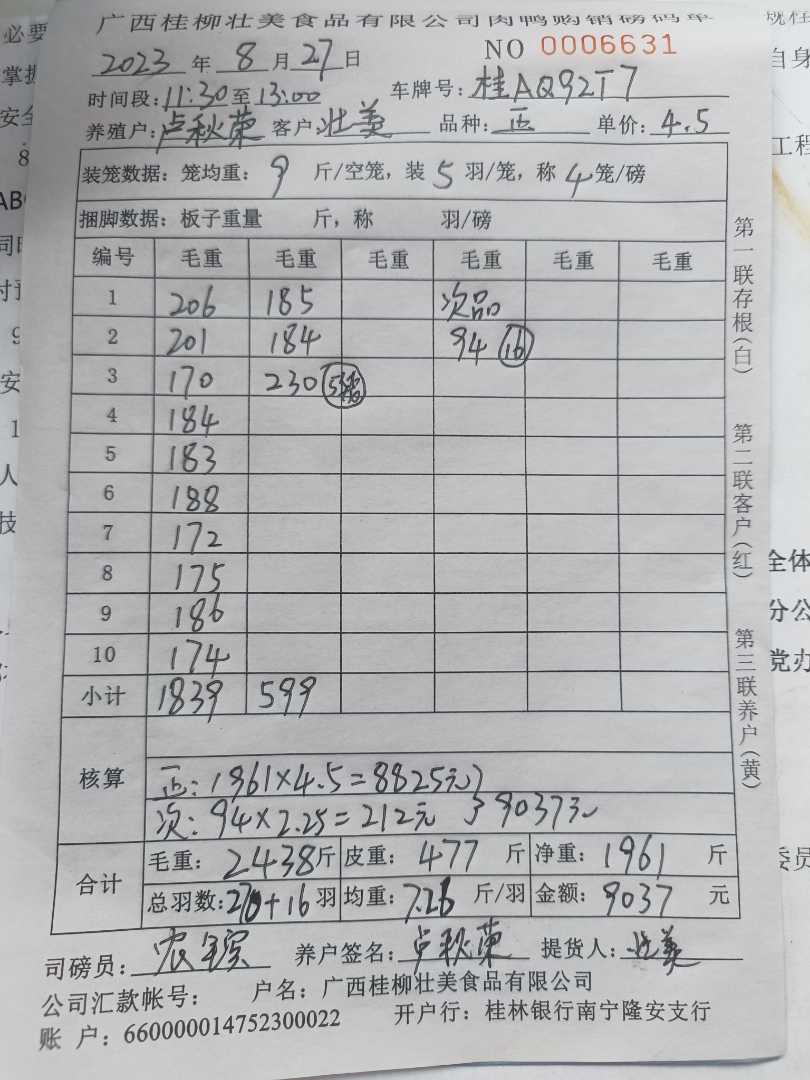 广西桂柳壮美食品有限公司肉鸭购销磅码单
2023年8月27日 NO 0006631
时间段:11:30至13:00 车牌号:桂AQ92T7
养殖户:卢秋荣 客户:壮美 品种:正 单价:4.5
装笼数据:笼均重:9斤/空笼,装5羽/笼,称4笼/磅
捆脚数据:板子重量 斤,称 羽/磅
编号 毛重 毛重 毛重 毛重 毛重 毛重
1 206 185 次品
2 201 184 94 16
3 170 230
4 184
5 183
6 188
7 172
8 175
9 186
10 174
小计 1839 599
核算
正:1961×4.5=8825元
次:94×2.25=212元 9037元
合计
毛重:2438斤 皮重:477斤 净重:1961斤
总羽数:270+16羽 均重:7.26斤/羽 金额:9037元
司磅员: 养户签名:卢秋荣 提货人:壮美
公司汇款帐号: 户名:广西桂柳壮美食品有限公司
账 户:660000014752300022 开户行:桂林银行南宁隆安支行
第一联存根(白)
第二联客户(红)
第三联养户(黄)
必要
掌握
安全
自身
工程
全体
分公
党办
委员